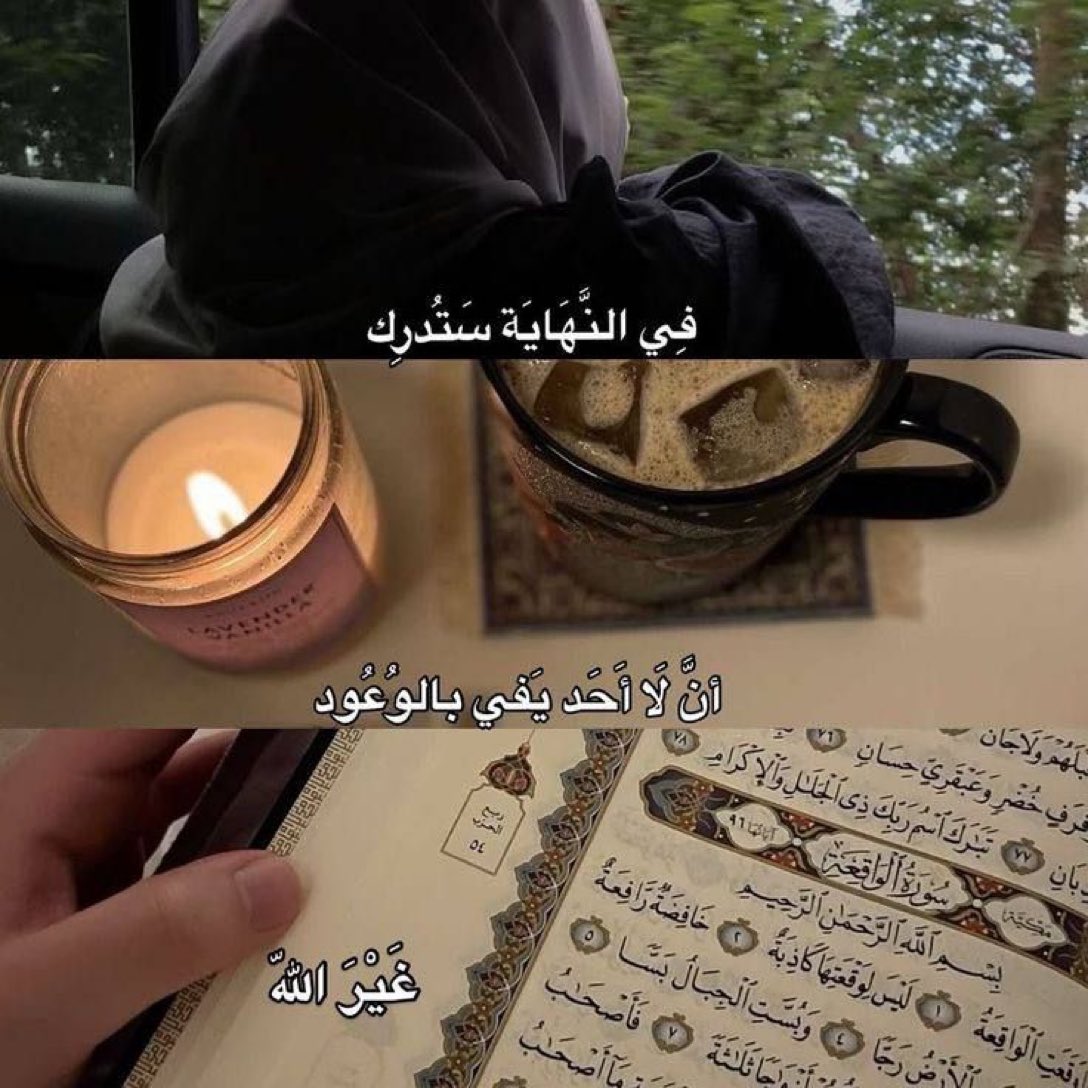 فِي النَّهَايَة سَتُدرِك
LAVENDER
VANILLA
أنَّ لَا أَحَد يَفي بالوُعُود
غَيْرَ اللهّ
ربع
الحزب
٥٤
٧٨
٧٦
حُضْرٍ وَعَبْقَرِيٍّ حِسَانٍ
٧٧ تَبَٰرَكَ ٱسْمُ رَبِّكَ ذِى ٱلْجَلَٰلِ وَٱلْإِكْرَامِ
مكية سُورَةُ ٱلْوَاقِعَةِ آياتها ٩٦
بِسْمِ ٱللَّهِ ٱلرَّحْمَٰنِ ٱلرَّحِيمِ
ٱلْوَاقِعَةُ ١ لَيْسَ لِوَقْعَتِهَا كَاذِبَةٌ ٢ خَافِضَةٌ رَّافِعَةٌ
ٱلْأَرْضُ رَجًّا ٤ وَبُسَّتِ ٱلْجِبَالُ بَسًّا ٥
ثَلَٰثَةً ٧ فَأَصْحَٰبُ
مَآ أَصْحَٰبُ